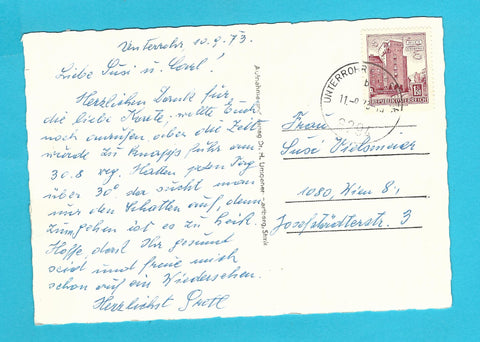 Unterrohr, 10.9.73.
Liebe Susi u. Carl!
Herrlichen Dank für
die liebe Karte, wollte Euch
noch anrufen aber die Zeit
wurde zu knapp, fuhr am
30.8 weg. Hatten jeden Tag
über 30° da sucht man
nur den Schatten auf, denn
zum gehen ist es zu heiß.
Hoffe, dass Ihr gesund
seid und freue mich
schon auf ein Wiedersehen.
Herzlichst Gretl
REPUBLIK ÖSTERREICH
UNTERROHR
Frau
Susi
1080, Wien 8.,
Josefstädterstr. 3